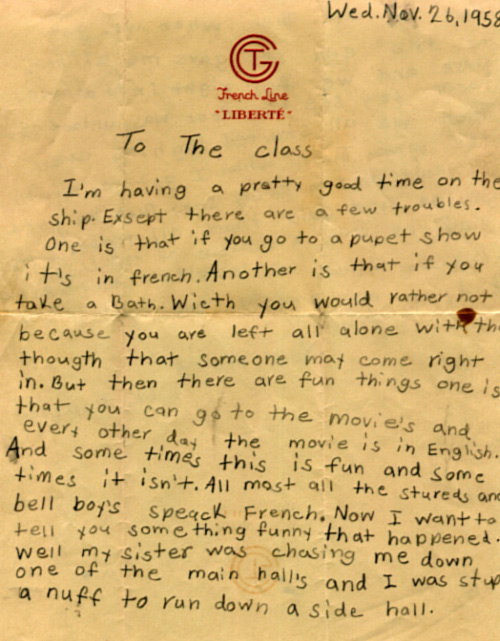 Wed. Nov. 26, 1958
CGT
French Line
"LIBERTÉ"
To The class
I'm having a pratty good time on the
ship. Exsept there are a few troubles.
One is that if you go to a pupet show
it's in french. Another is that if you
take a Bath. Wicth you would rather not
because you are left all alone with th
thougth that someone may come right
in. But then there are fun things one is
that you can go to the movie's and
every other day the movie is in English.
And some times this is fun and some
times it isn't. All most all the stureds and
bell boy's speack French. Now I want to
tell you some thing funny that happened.
Well my sister was chasing me down
one of the main hall's and I was stup
a nuff to run down a side hall.